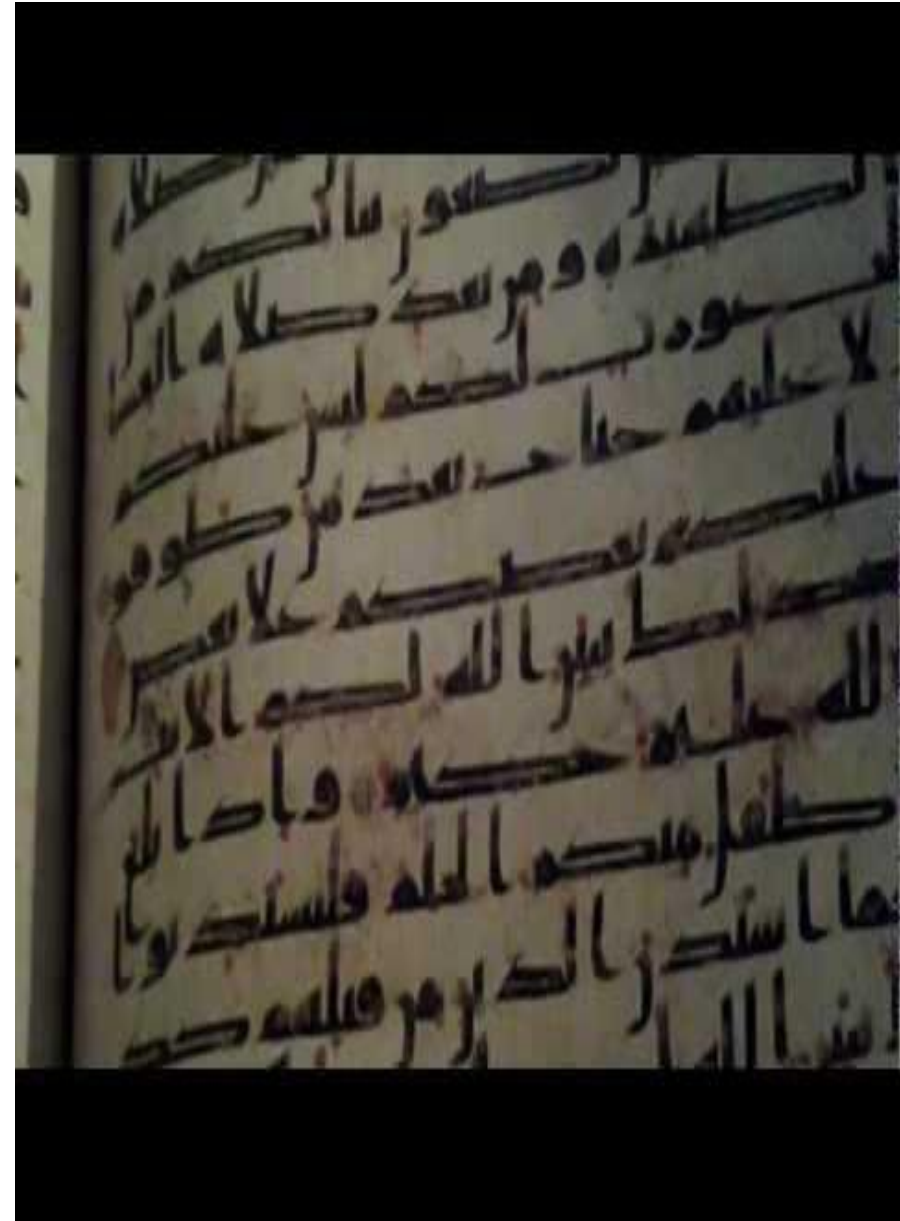 تضعون ثيابكم من
الظهيرة ومن بعد صلاه العشا
عورت لكم ليس عليكم
لا عليهم جناح بعدهن طوفون
عليكم بعضكم علا بعض
كذلك يبين الله لكم الايت
الله عليم حكيم واذا بلغ
طفل منكم الحلم فليستذنوا
كما استذن الذين من قبلهم كذ
يبين الله